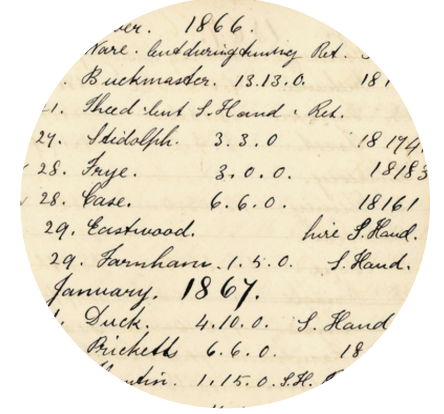 ber. 1866.
Ware. lent during tuning Ret.
. Buckmaster. 13.13.0. 181
1. Theed lent S. Hand. Ret.
27. Stidolph. 3.3.0 18174
28. Frye. 3.0.0. 18183
28. Case. 6.6.0. 18161
29. Eastwood. hire S. Hand.
29. Farnham. 1.5.0. S. Hand.
January. 1867.
1. Duck. 4.10.0. S. Hand
Pricketts 6.6.0. 18
1.15.0. S.H.